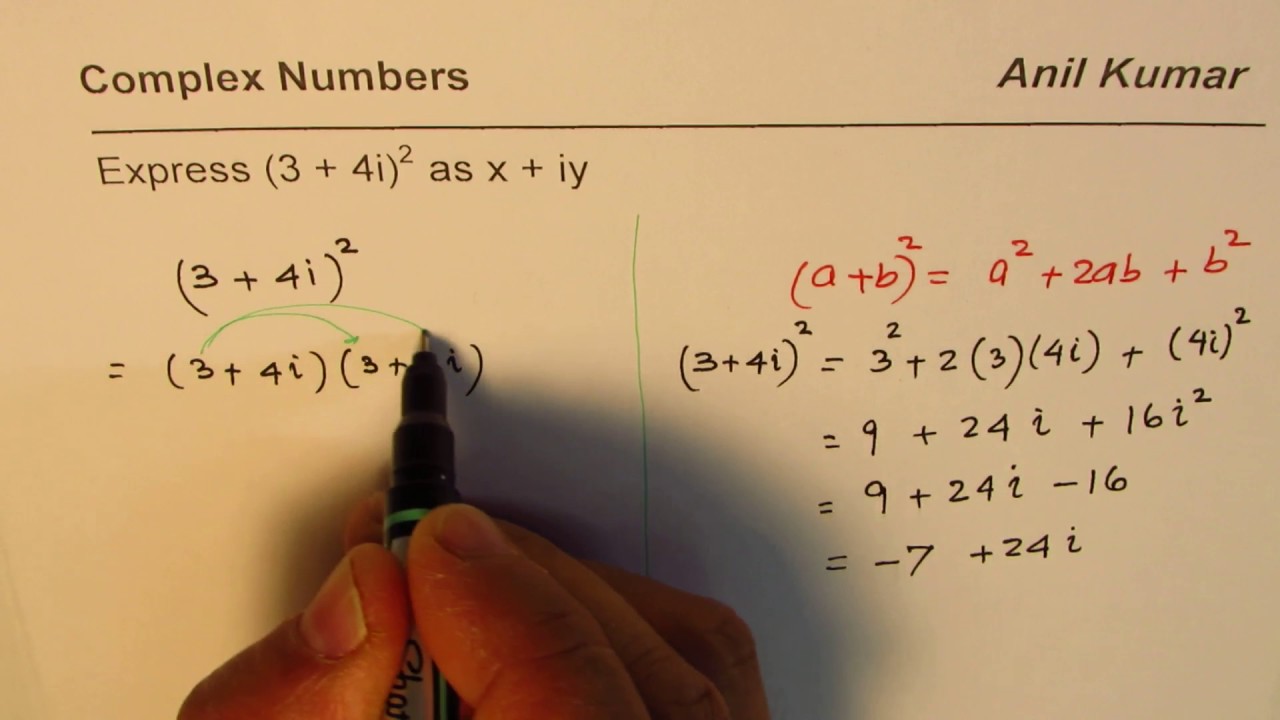 Complex Numbers
Anil Kumar
Express (3 + 4i)² as x + iy
(3 + 4i)²
= (3 + 4i)(3 + i)
(a+b)² = a² + 2ab + b²
(3+4i)² = 3² + 2(3)(4i) + (4i)²
= 9 + 24i + 16i²
= 9 + 24i - 16
= -7 + 24i